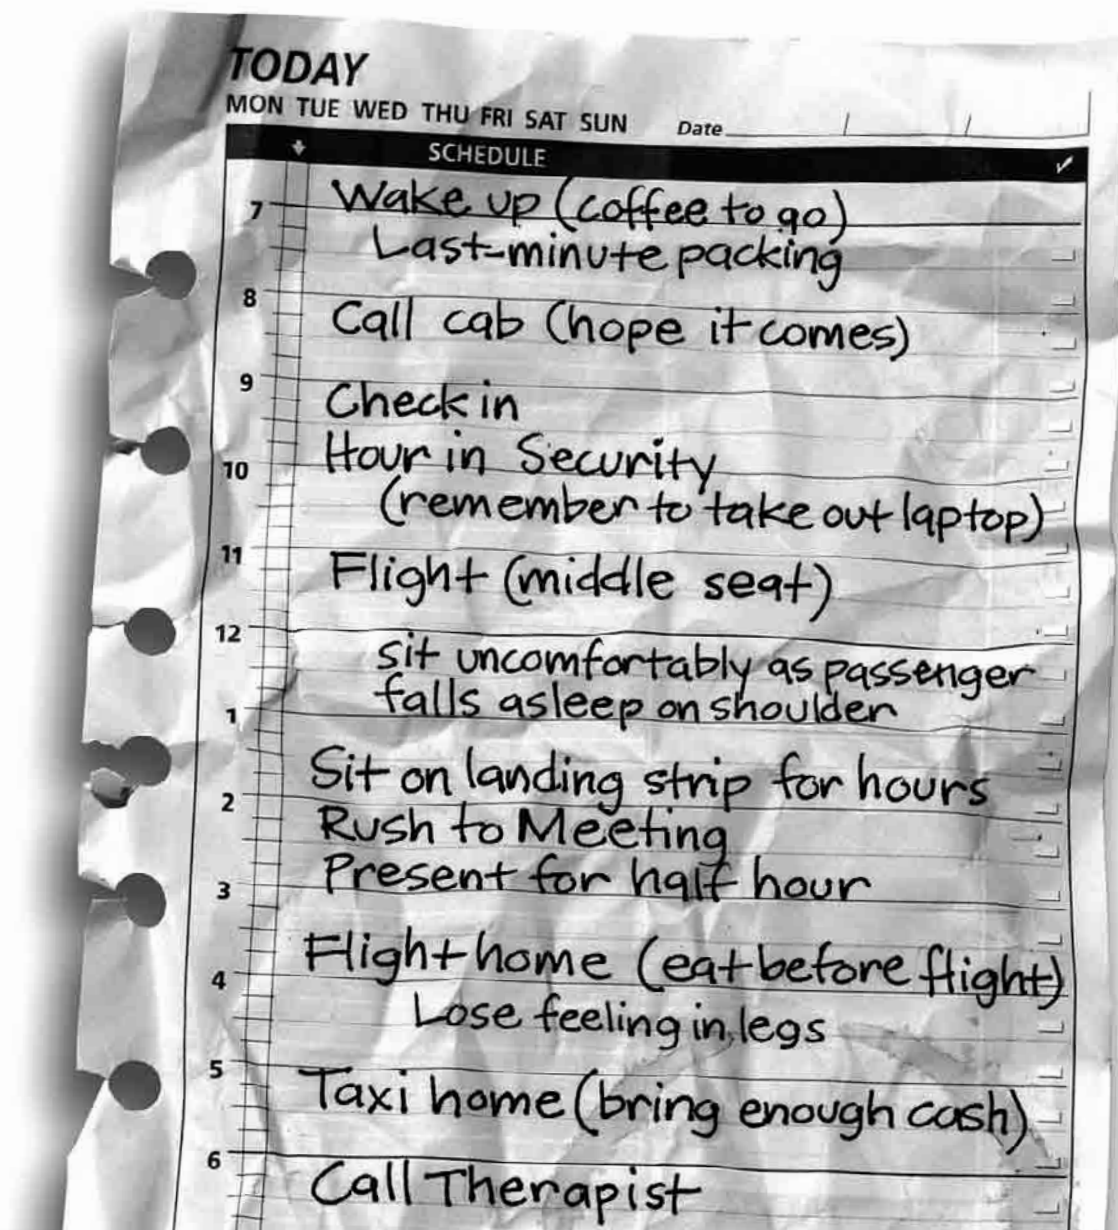 TODAY
MON TUE WED THU FRI SAT SUN Date / /
SCHEDULE
7 Wake up (coffee to go)
Last-minute packing
8
Call cab (hope it comes)
9
Check in
10 Hour in Security
(remember to take out laptop)
11
Flight (middle seat)
12
sit uncomfortably as passenger
1 falls asleep on shoulder
Sit on landing strip for hours
2
Rush to Meeting
3 Present for half hour
4 Flight home (eat before flight)
Lose feeling in legs
5
Taxi home (bring enough cash)
6
Call Therapist